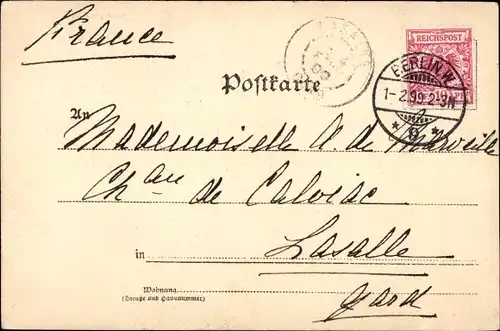 France
REICHSPOST
10
BERLIN.W.
1-2.99.2-3N
* 9 *
Postkarte
An Mademoiselle A de Merveille
Chau de Calviac
in Lasalle
Wohnung
(Straße und Hausnummer)
Gard